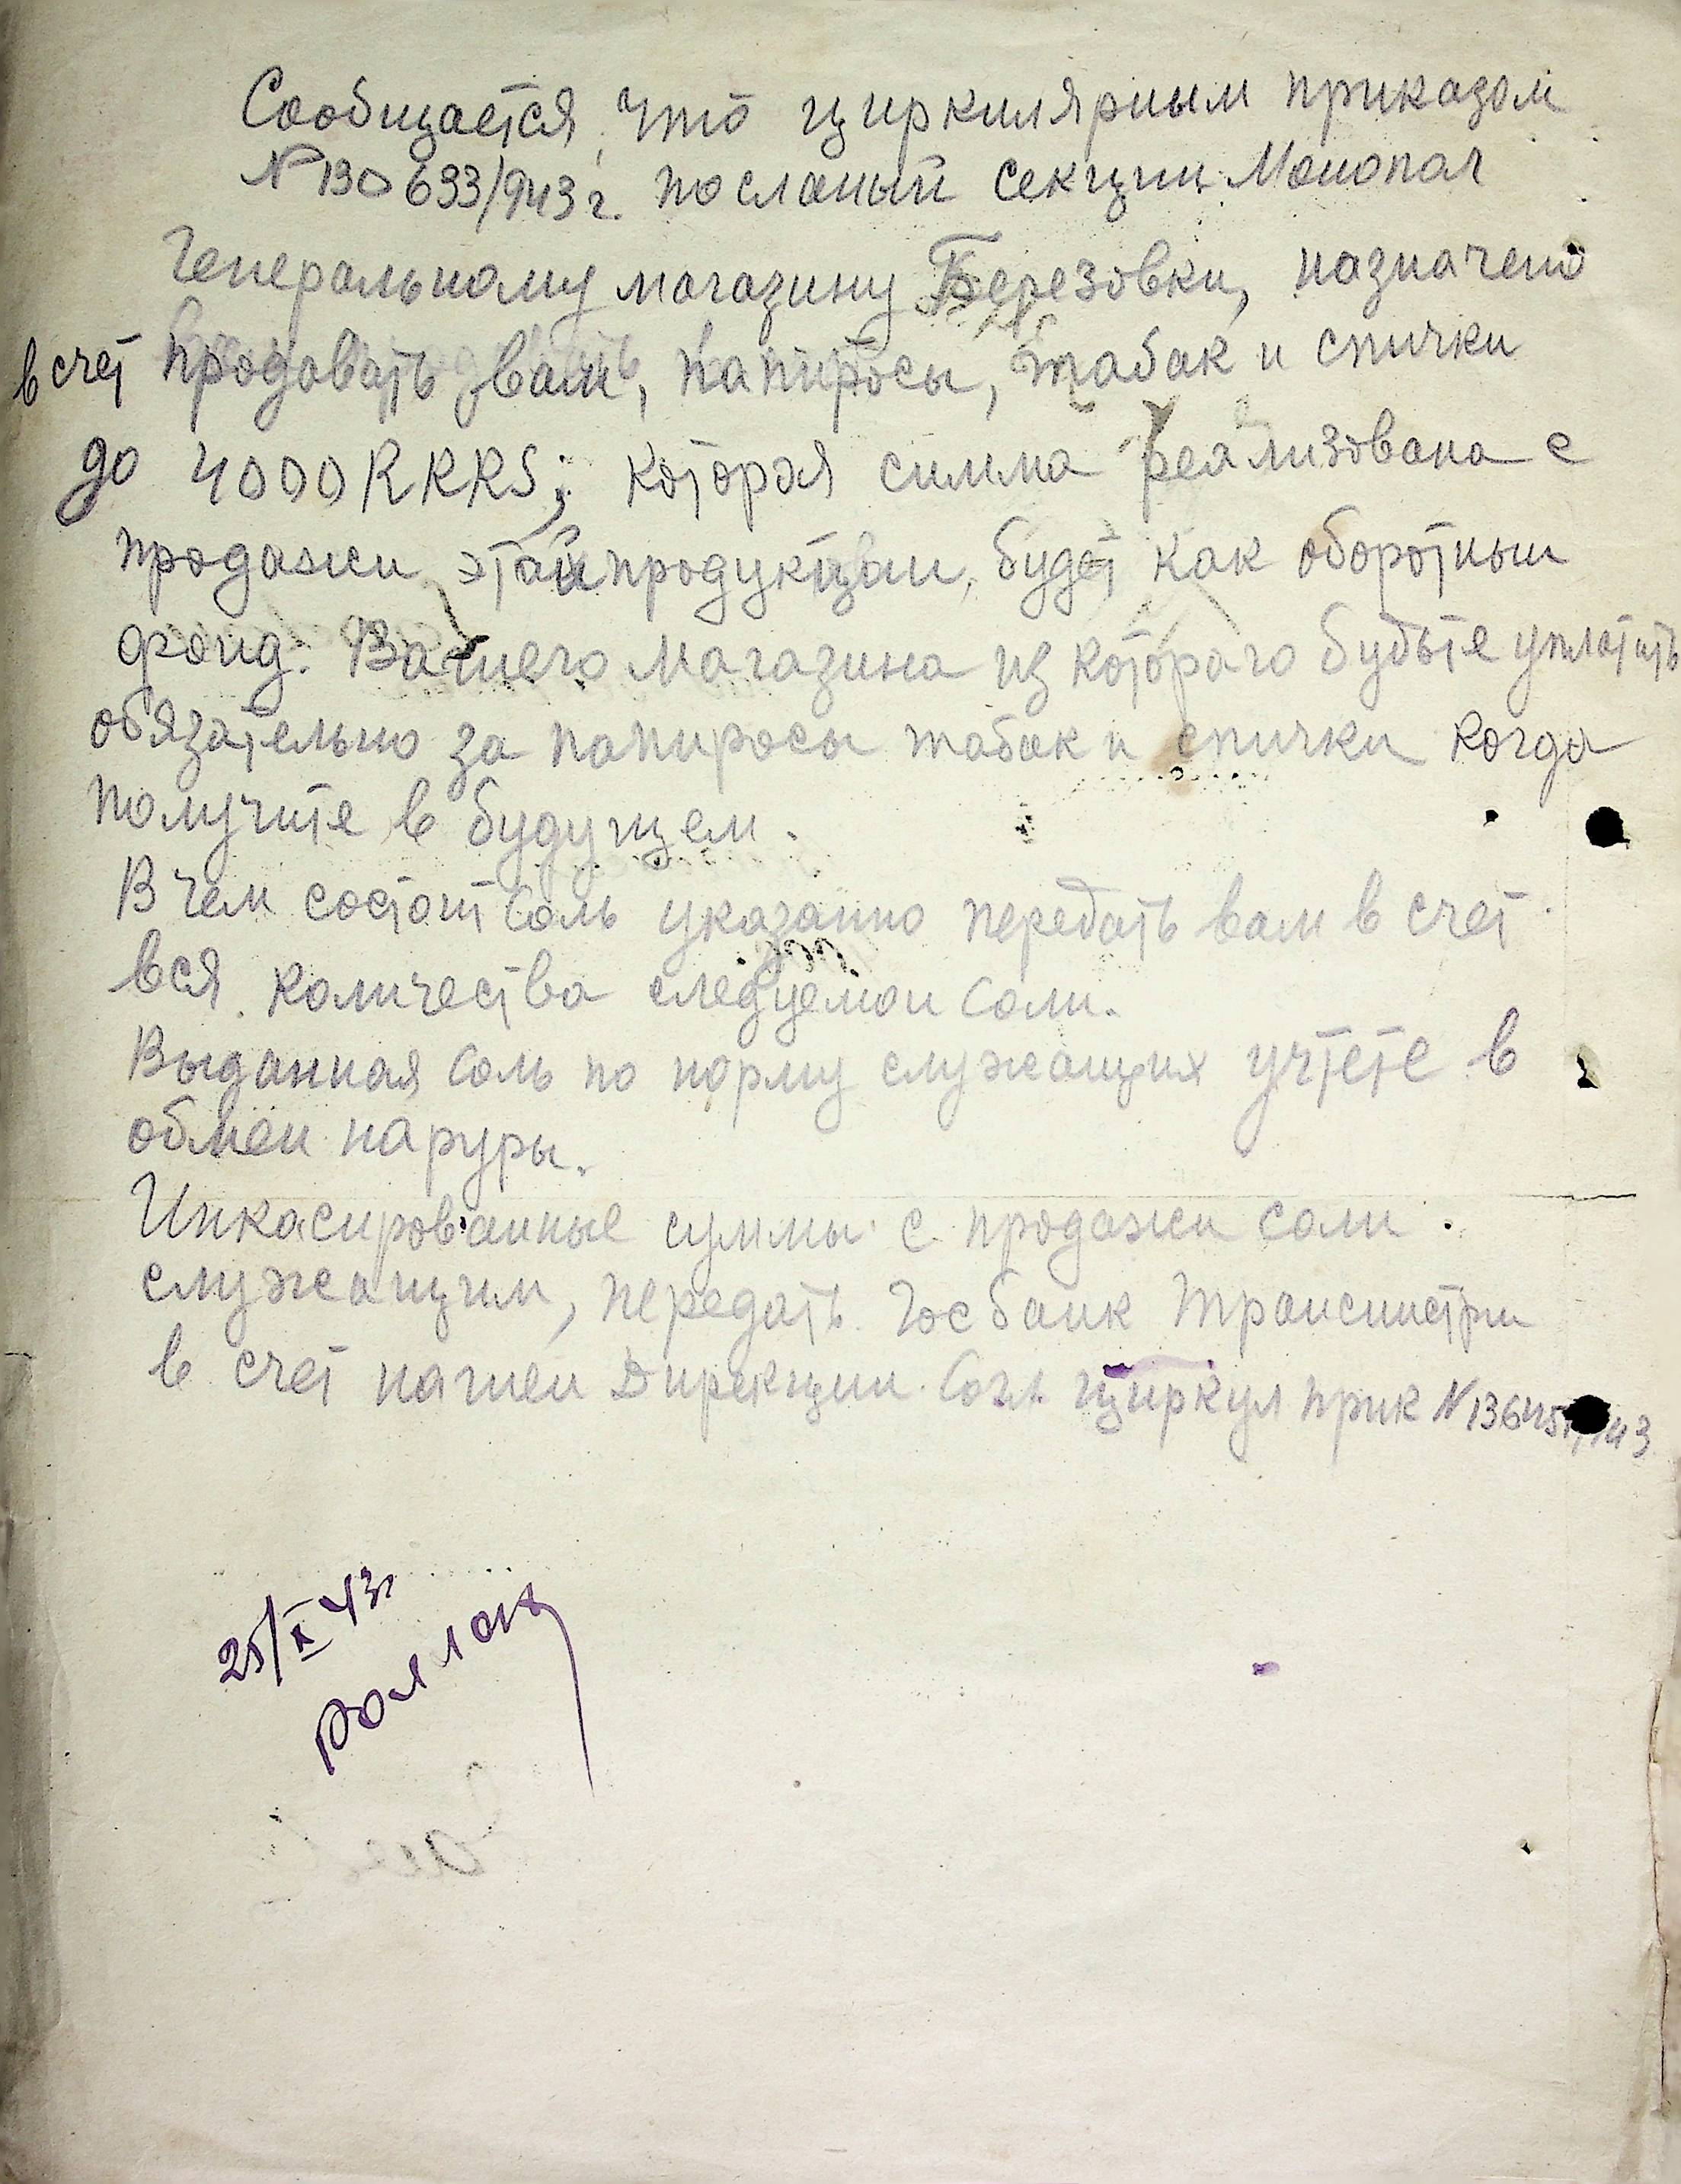 Сообщается, что циркилярным приказом
№ 130633/943 г. посланый секции Монопол
Генеральному магазину Березовки, назначено
в счет продовать вам, папиросы, табак и спички
до 4000 RKKS; которая симма реализована с
продажи этай продукциаи, будет как оборотным
фонд. Вашего магазина из которого будьте уплатить
обязательно за папиросы табак и спички когда
получите в будущем.
В чем состоит соль указанно передать вам в счет
вся количества следуемои соли.
Выданная соль по норму служащих учтете в
обмен наруры.
Инкасированные суммы с продажи соли
служащим, передать Госбанк Транснистри
в счет нашеи Дирекции. Согл. циркул прик №
25/X 43г